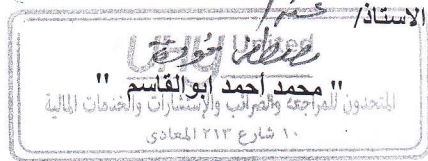 الاستاذ/
United
" محمد أحمد ابوالقاسم "
المتحدون للمراجعة والضرائب والإستشارات والخدمات المالية
١٠ شارع ٢١٣ المعادى